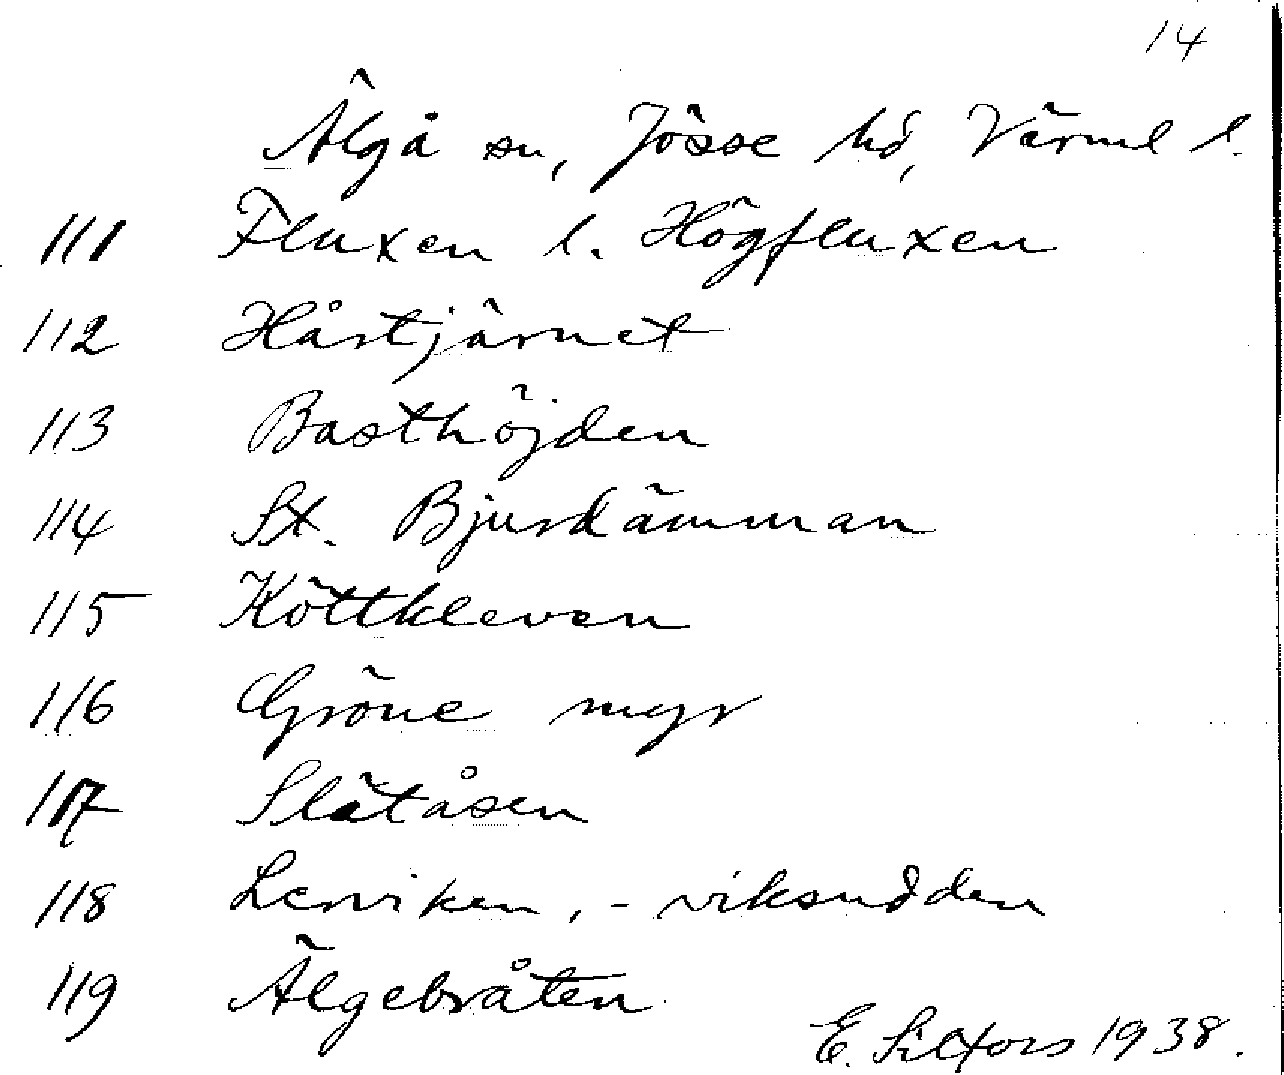 14
Älgå sn, Jösse hd, Värml l.
111 Fluxen l. Högfluxen
112 Hårtjärnet
113 Basthöjden
114 St. Bjurdämman
115 Köttkleven
116 Gröne myr
117 Slätåsen
118 Lerviken, - viksudden
119 Älgebråten
E. Silfors 1938.